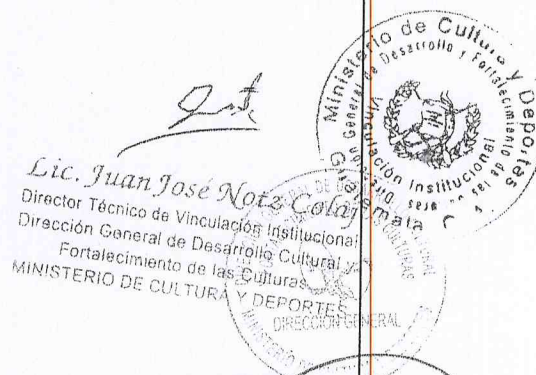 Lic. Juan José Notz Colaj
Director Técnico de Vinculación Institucional
Dirección General de Desarrollo Cultural y
Fortalecimiento de las Culturas
MINISTERIO DE CULTURA Y DEPORTES
Ministerio de Cultura y Deportes
General de Desarrollo y Fortalecimiento de las
Vinculación Institucional
Guatemala
DIRECCIÓN GENERAL